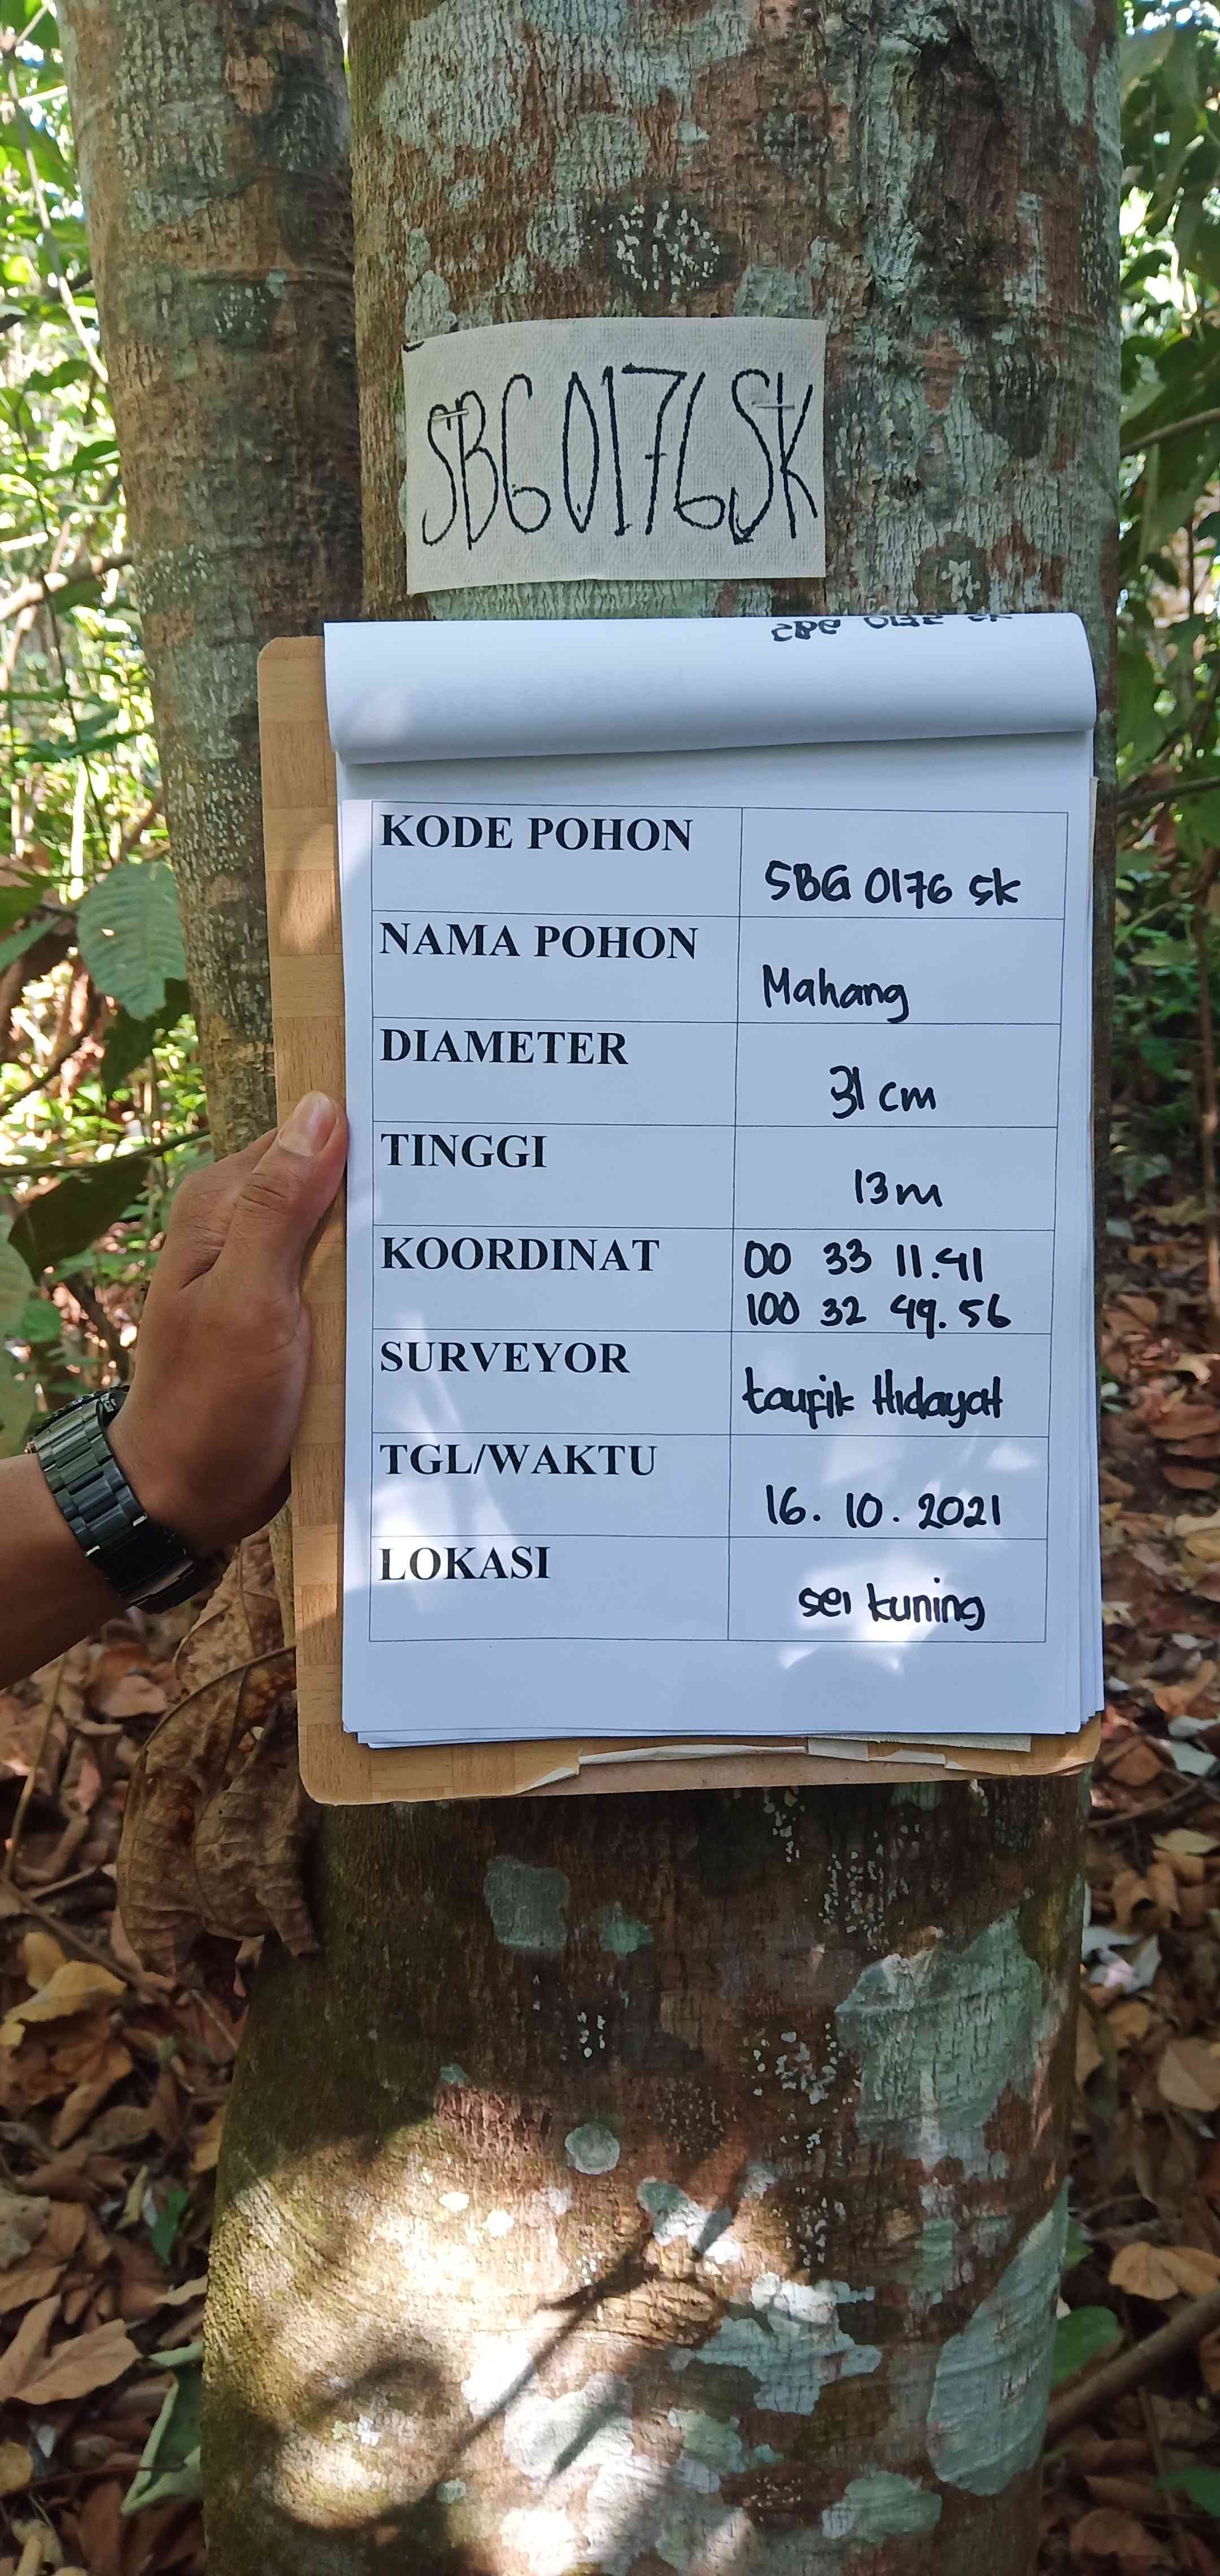 SBG0176SK
SBG 0175 SK
KODE POHON
SBG 0176 SK
NAMA POHON
Mahang
DIAMETER
31 cm
TINGGI
13 m
KOORDINAT
00 33 11.41
100 32 49.56
SURVEYOR
taufik Hidayat
TGL/WAKTU
16. 10. 2021
LOKASI
sei kuning